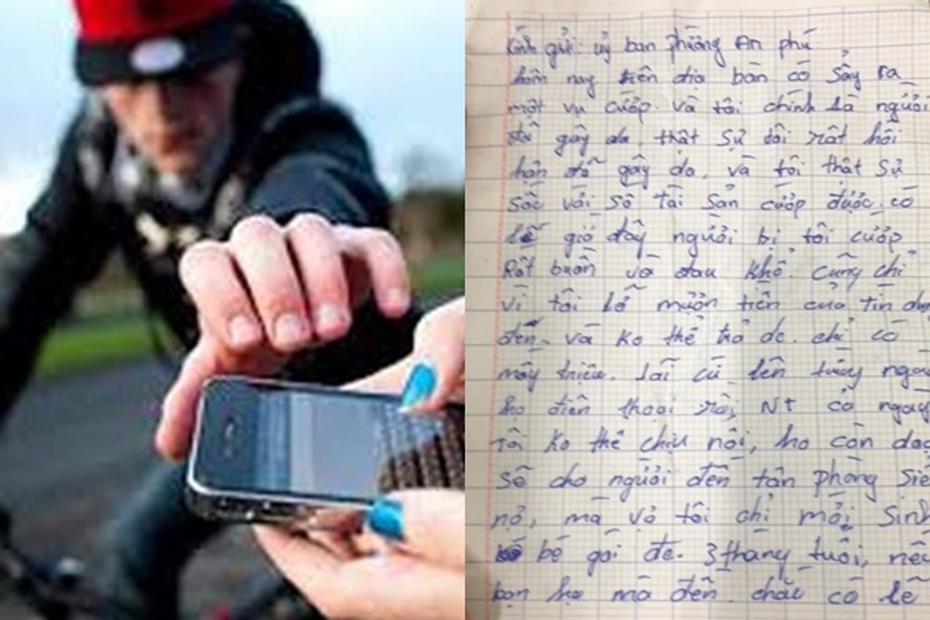 Kính gửi: uỷ ban phường An phú
hôm nay trên địa bàn có sảy ra
một vụ cướp và tôi chính là người
đã gây da. thật sự tôi rất hối
hận đã gây da. và tôi thật sự
sốc với số tài sản cướp được. có
lẽ giờ đây người bị tôi cướp
Rất buồn và đau khổ. cũng chỉ
vì tôi lỡ mượn tiền của tín
đến. và ko thể trả dc. chỉ có
mấy triệu. lãi cứ lên từng
họ điện thoại rồi, NT cả ngày
tôi ko thể chịu nổi, họ còn
sẽ cho người đến tận phòng
nợ, mà vợ tôi chỉ mới sinh
bé gái đc. 3 tháng tuổi,
bọn họ mà đến. chắc có lẽ